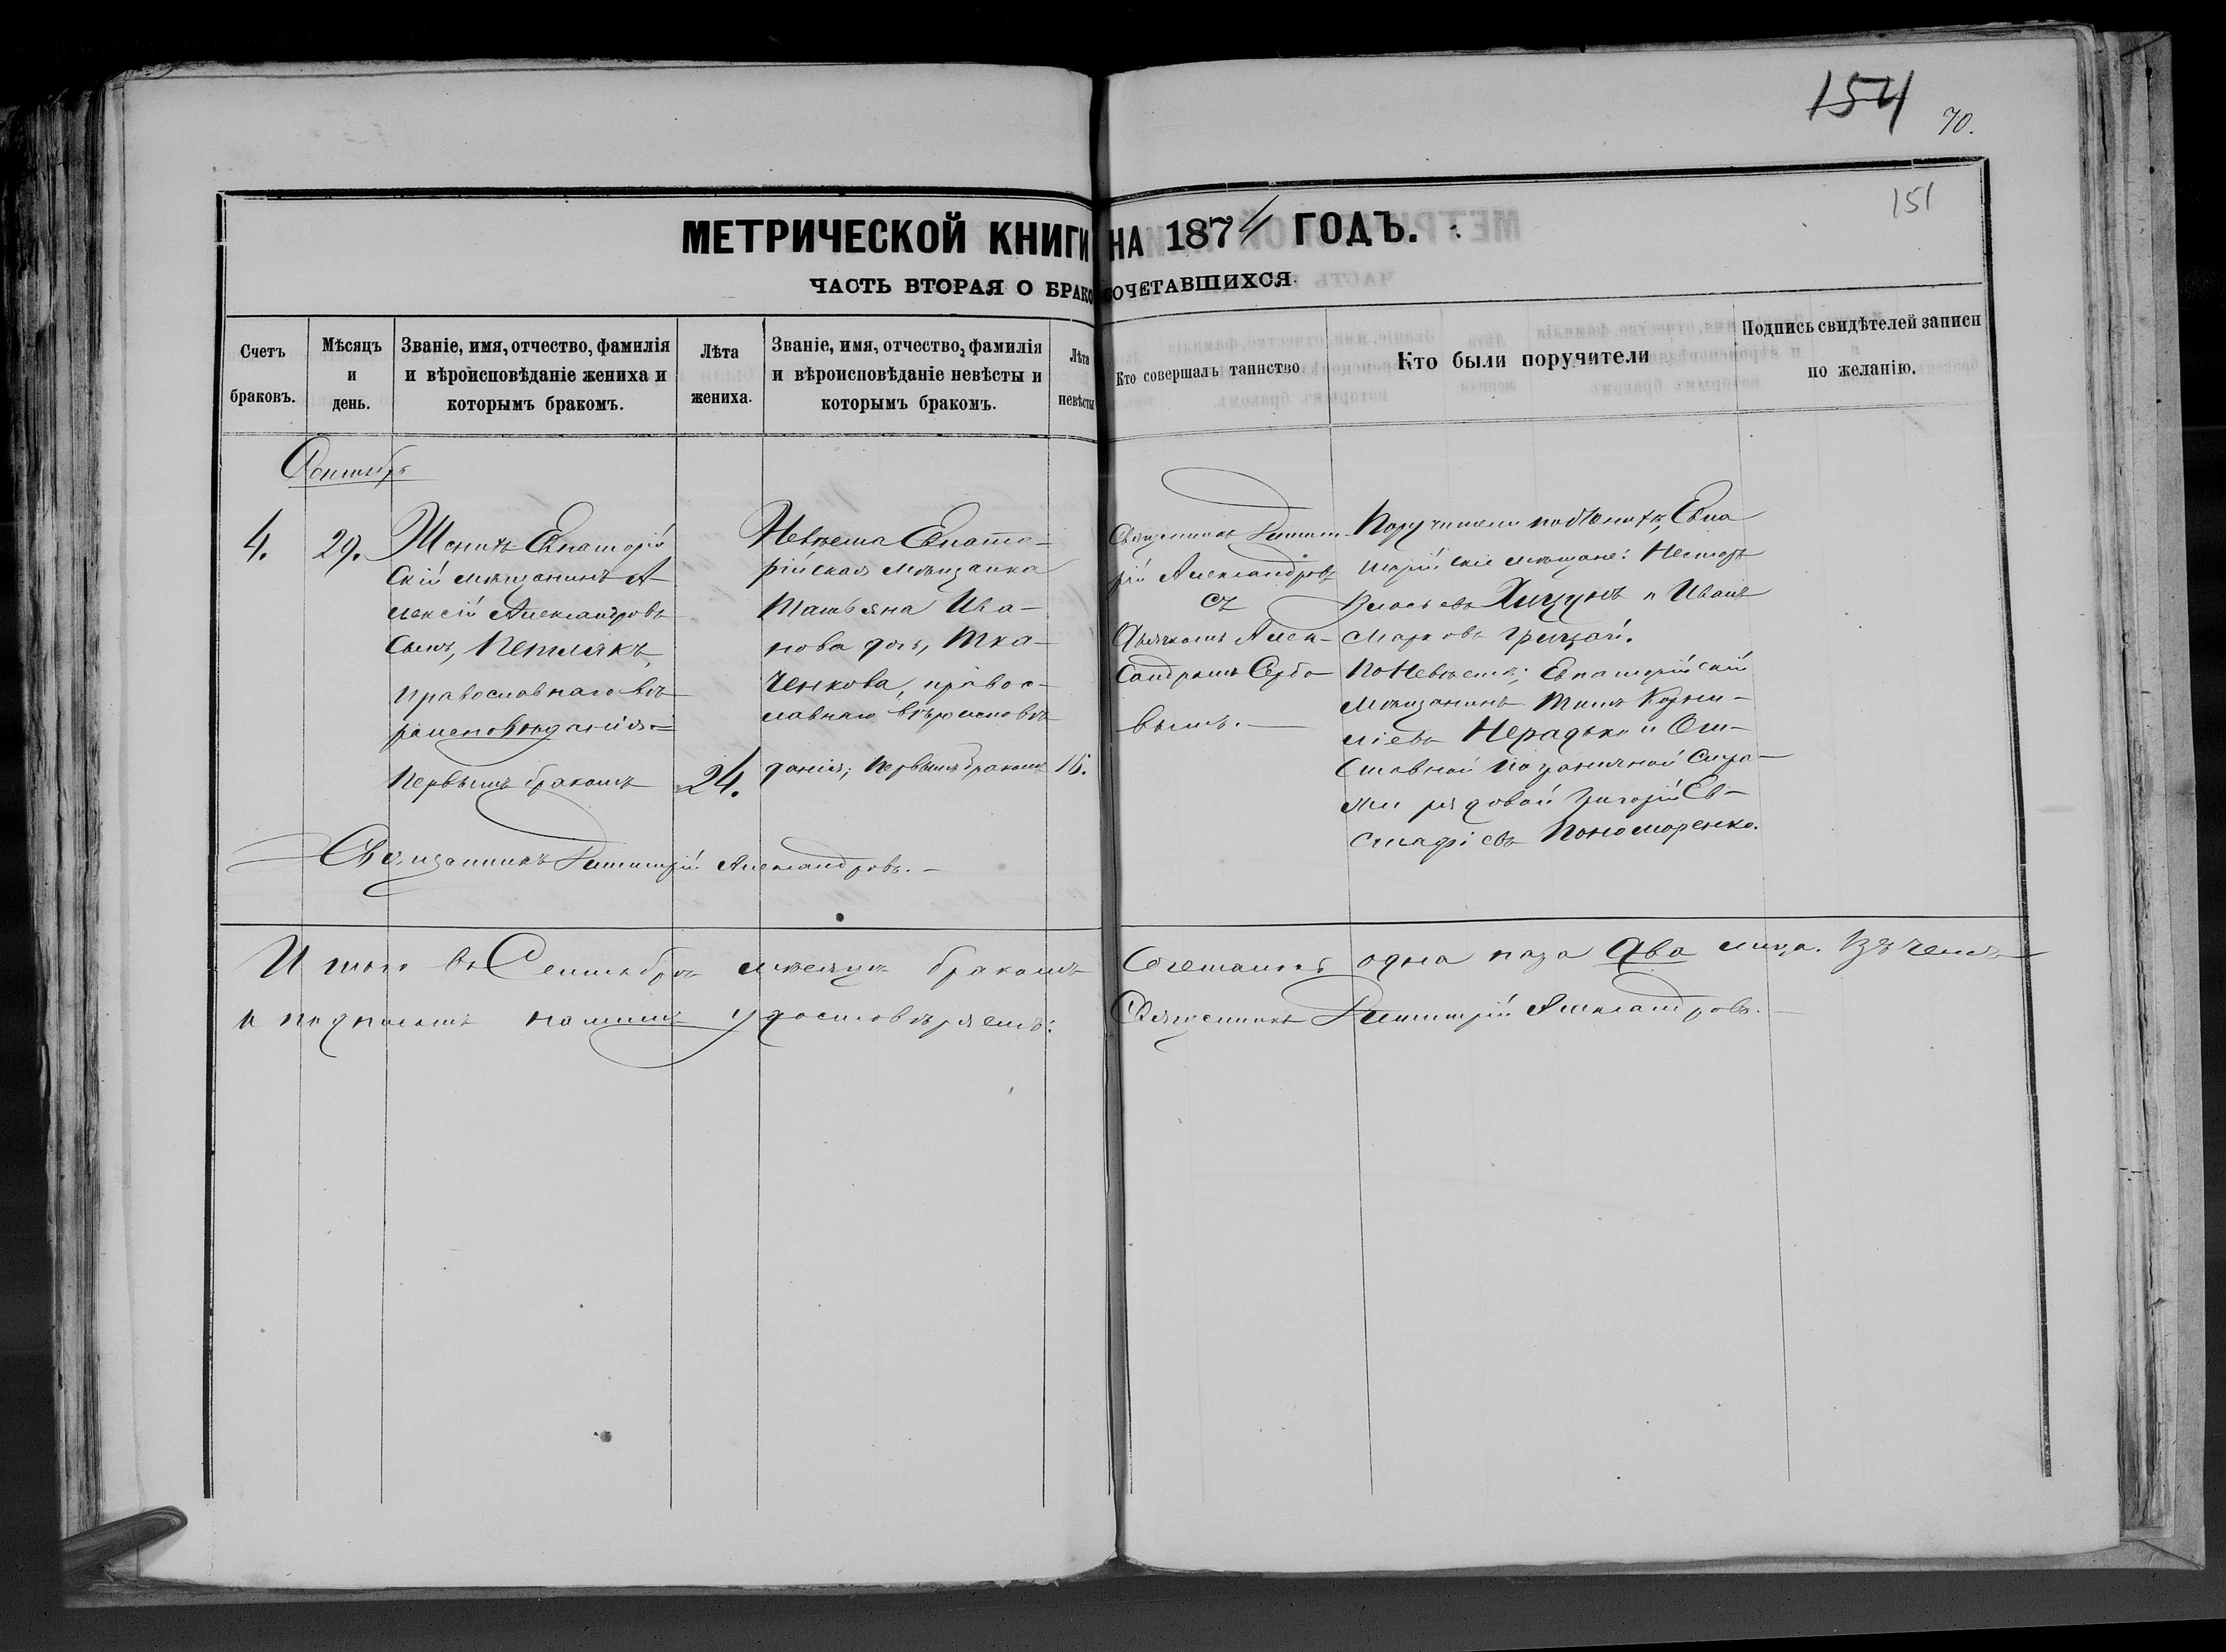 154
70.
151
МЕТРИЧЕСКОЙ КНИГИ НА 1874 ГОДЪ.
ЧАСТЬ ВТОРАЯ О БРАКОСОЧЕТАВШИХСЯ.
Счетъ браковъ.
Мѣсяцъ и день.
Званіе, имя, отчество, фамилія
и вѣроисповѣданіе жениха и
которымъ бракомъ.
Лѣта
жениха.
Званіе, имя, отчество, фамилія
и вѣроисповѣданіе невѣсты и
которымъ бракомъ.
Лѣта
невѣсты
Кто совершалъ таинство
Кто были поручители
Подпись свидѣтелей записи
по желанію.
Сентябрь
4.
29.
Женихъ Евпаторій
скій мѣщанинъ А-
лексій Александровъ
сынъ, Петлякъ,
православнаго вѣ-
роисповѣданія
первымъ бракомъ
24.
Невѣста Евпато-
рійская мѣщанка
Татьяна Ива-
нова дочь, Тка-
ченкова, правос-
лавнаго вѣроисповѣ
данія; первымъ бракомъ
16.
Священникъ Димит-
рій Александровъ
съ
Дьячкомъ Алек-
сандромъ Сербо-
вымъ.
Поручители по женихѣ, Евпа
торійскіе мѣщане: Несторъ
Власьевъ Хижунъ и Иванъ
Марковъ Грицай.
По невѣстѣ; Евпаторійскій
мѣщанинъ Титъ Корни-
ліевъ Нерадько и От-
ставной пограничной стра-
жи рядовой Григорій Ев-
стафіевъ Пономоренко.
Священникъ Димитрій Александровъ.
Итого въ Сентябрѣ мѣсяцѣ бракомъ сочеталась одна пара два лица. Въ чемъ
и подписомъ нашимъ удостовѣряемъ: Священникъ Димитрій Александровъ.